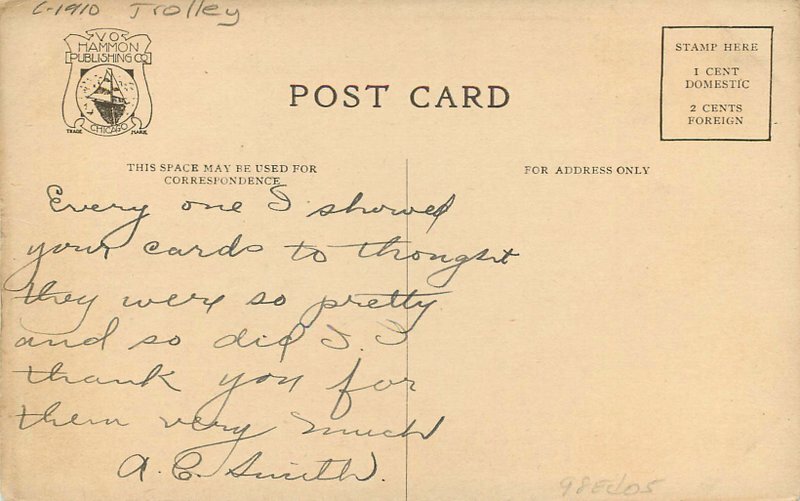 C-1910 Trolley
V.O.
HAMMON
PUBLISHING CO
CHICAGO
TRADE MARK
POST CARD
STAMP HERE
1 CENT
DOMESTIC
2 CENTS
FOREIGN
THIS SPACE MAY BE USED FOR
CORRESPONDENCE
FOR ADDRESS ONLY
Every one I showed
your cards to thought
they were so pretty
and so did I. I
thank you for
them very much
A. C. Smith.